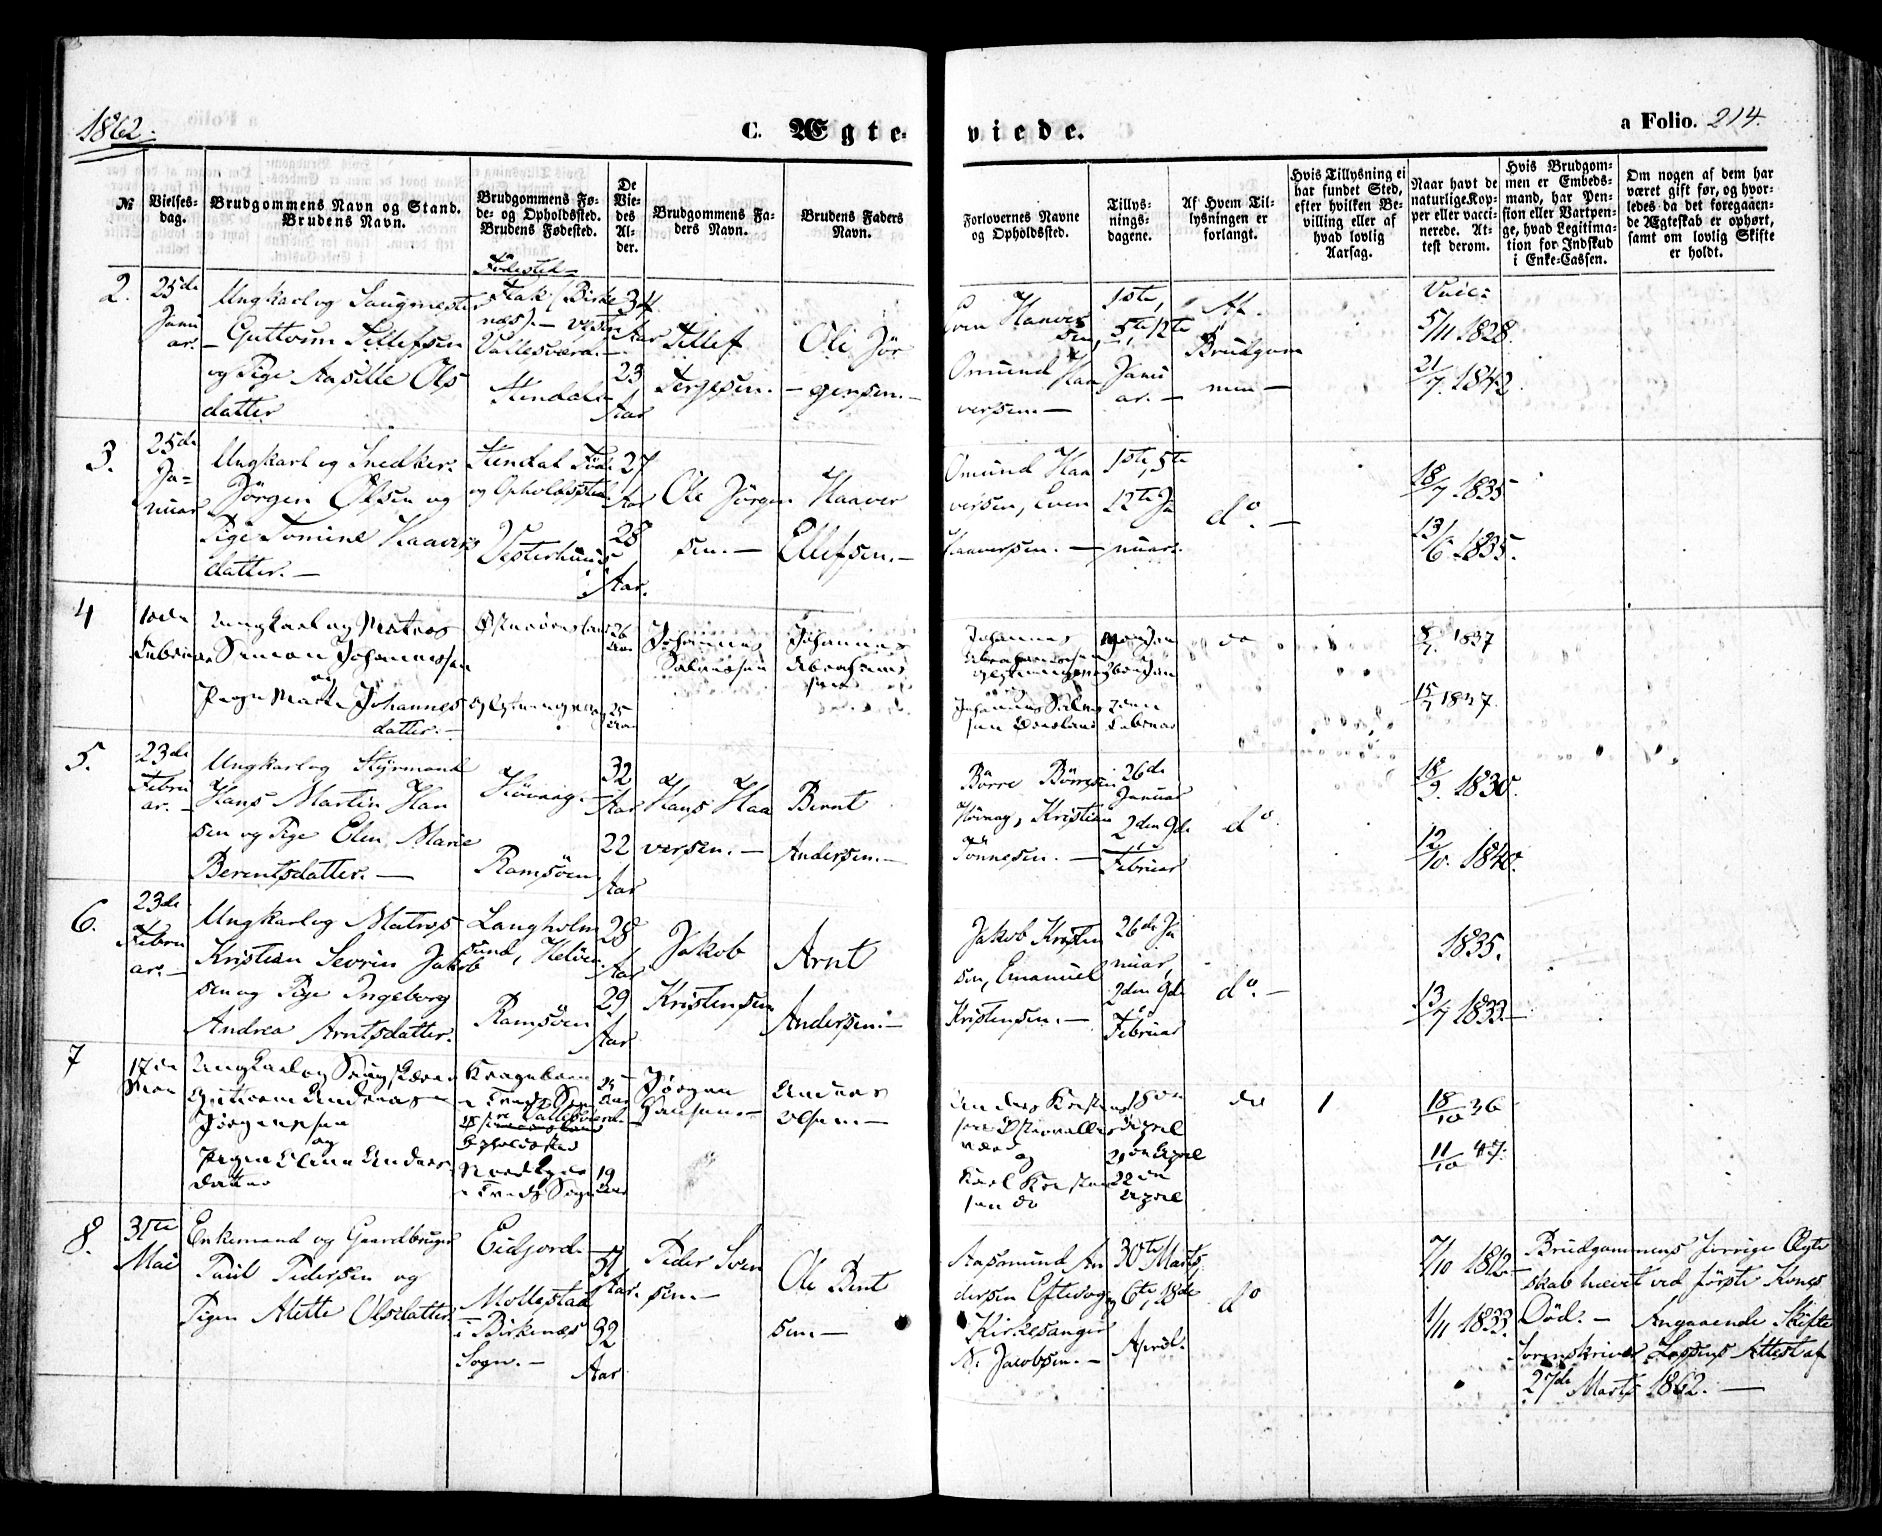 1862.
C. Ægte-
viede.
a Folio. 214.
№
Vielses-
dag.
Brudgommens Navn og Stand.
Brudens Navn.
Brudgommens Fø-
de- og Opholdssted.
Brudens Fødested.
De
Vie-
des
Al-
der.
Brudgommens Fa-
ders Navn.
Brudens Faders
Navn.
Forlovernes Navne
og Opholdssted.
Tillys-
nings-
dagene.
Af Hvem Til-
lysningen er
forlangt.
Hvis Tillysning ei
har fundet Sted,
efter hvilken Be-
villing eller af
hvad lovlig
Aarsag.
Naar havt de
naturlige Kop-
per eller vacci-
nerede. At-
test derom.
Hvis Brudgom-
men er Embeds-
mand, har Pen-
sion eller Vartpen-
ge, hvad Legitima-
tion for Indskud
i Enke-Cassen.
Om nogen af dem har
været gift før, og hvor-
ledes da det foregaaen-
de Ægteskab er ophørt,
samt om lovlig Skifte
er holdt.
2.
25de
Janu
ar.
Ungkarl og Saugmester
Guttorm Tellefsen
og Pige Aasille Ols
datter
Fødested
Flak (Birke
næs).
Vallesværd.
Stendal
34
Aar
23
Aar
Tellef
Terjesen.
Ole Jør
gensen.
Even Haaver
sen,
Omund Haa
versen.
1ste,
5te, 12te
Janu
ar.
Af
Brudgom
men
Vacc:
5/11 1828.
21/7 1842
3.
25de
Ja-
nuar
Ungkarl og Snedker
Jörgen Olsen og
Pige Tomine Haavers
datter.
Stendal Føde
og Opholdssted
Vesterhuus
27
Aar
28
Aar.
Ole Jörgen
sen.
Haaver
Ellefsen.
Omund Haa
versen, Even
Haaversen.
1ste, 5te
12te Ja
nuar.
do.
18/7 1835
13/6 1835.
4
10den
Februar
Ungkarl og Matros
Simon Johannessen
og
Pigen Marte Johannes
datter.
26
Aar
25
Aar
Johannes
Salvesen
Johannes
Abrahams
sen
Johannes
og
Johannes Salve
sen
2den
Februar
do
8/7 1837
15/7 1837
5.
23de
Febru
ar.
Ungkarl og Styrmand
Hans Martin Han
sen og Pige Elen Marie
Berentsdatter.
Hövaag.
Ramsöen
32
Aar
22
Aar
Hans Haa
versen.
Bernt
Andersen.
Börre Börresen
Hövaag, Kristian
Tönnesen.
26de
Januar
2den 9de
Februar
do.
18/9 1830.
12/10 1840.
6.
23de
Febru
ar.
Ungkarl og Matros
Kristian Severin Jakob
sen og Pige Ingeborg
Andrea Arntsdatter.
Langholm
sund,
Ramsöen
28
Aar
29
Aar
Jakob
Kristensen
Arnt
Andersen.
Jakob Kristen
sen, Emanuel
Kristensen.
26de Ja
nuar,
2den 9de
Februar
do.
1835.
13/7 1833.
7
17de
Mai
Ungkarl og
Guttorm Andreas
Jørgensen
og
Pigen Anders
datter
i Treds Sogn
Opholdssted
i Treds Sogn
25
Aar
19
Aar
Jørgen
Hansen
Anders
Olsen
Anders Kristen
sen
og
Karl Kristen
sen do
18de
April
21de April
22de
April
do
1
18/10 36
11/10 47.
8.
31te
Mai
Enkemand og Gaardbruger
Paul Pedersen og
Pigen Alette Olsdatter
Eidjord.
Mollestad
i Birkenæs
Sogn.
51
Aar.
32
Aar
Peder Sven
sen.
Ole Bent
sen.
Aasmund An
dersen Eftevog
Kirkesanger
N. Jacobsen.
30te Marts,
6te, 18de
April.
do
7/10 1812
1/11 1833.
Brudgommens forrige Ægte
skab hævet ved förste Kones
Död. — Angaaende Skifte
Sorenskriver Lassens Attest af
27de Marts 1862.